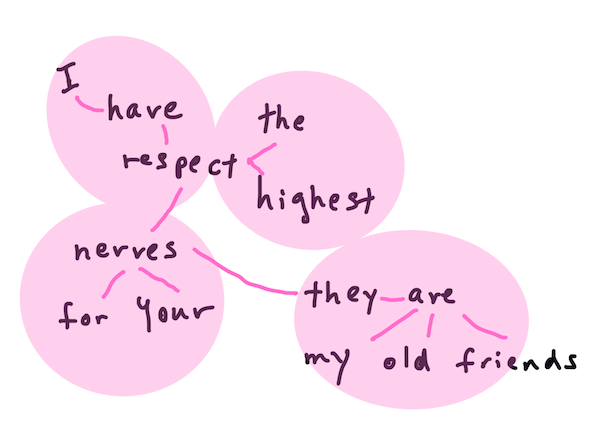 I
have
the
respect
highest
nerves
for your
they are
my old friends